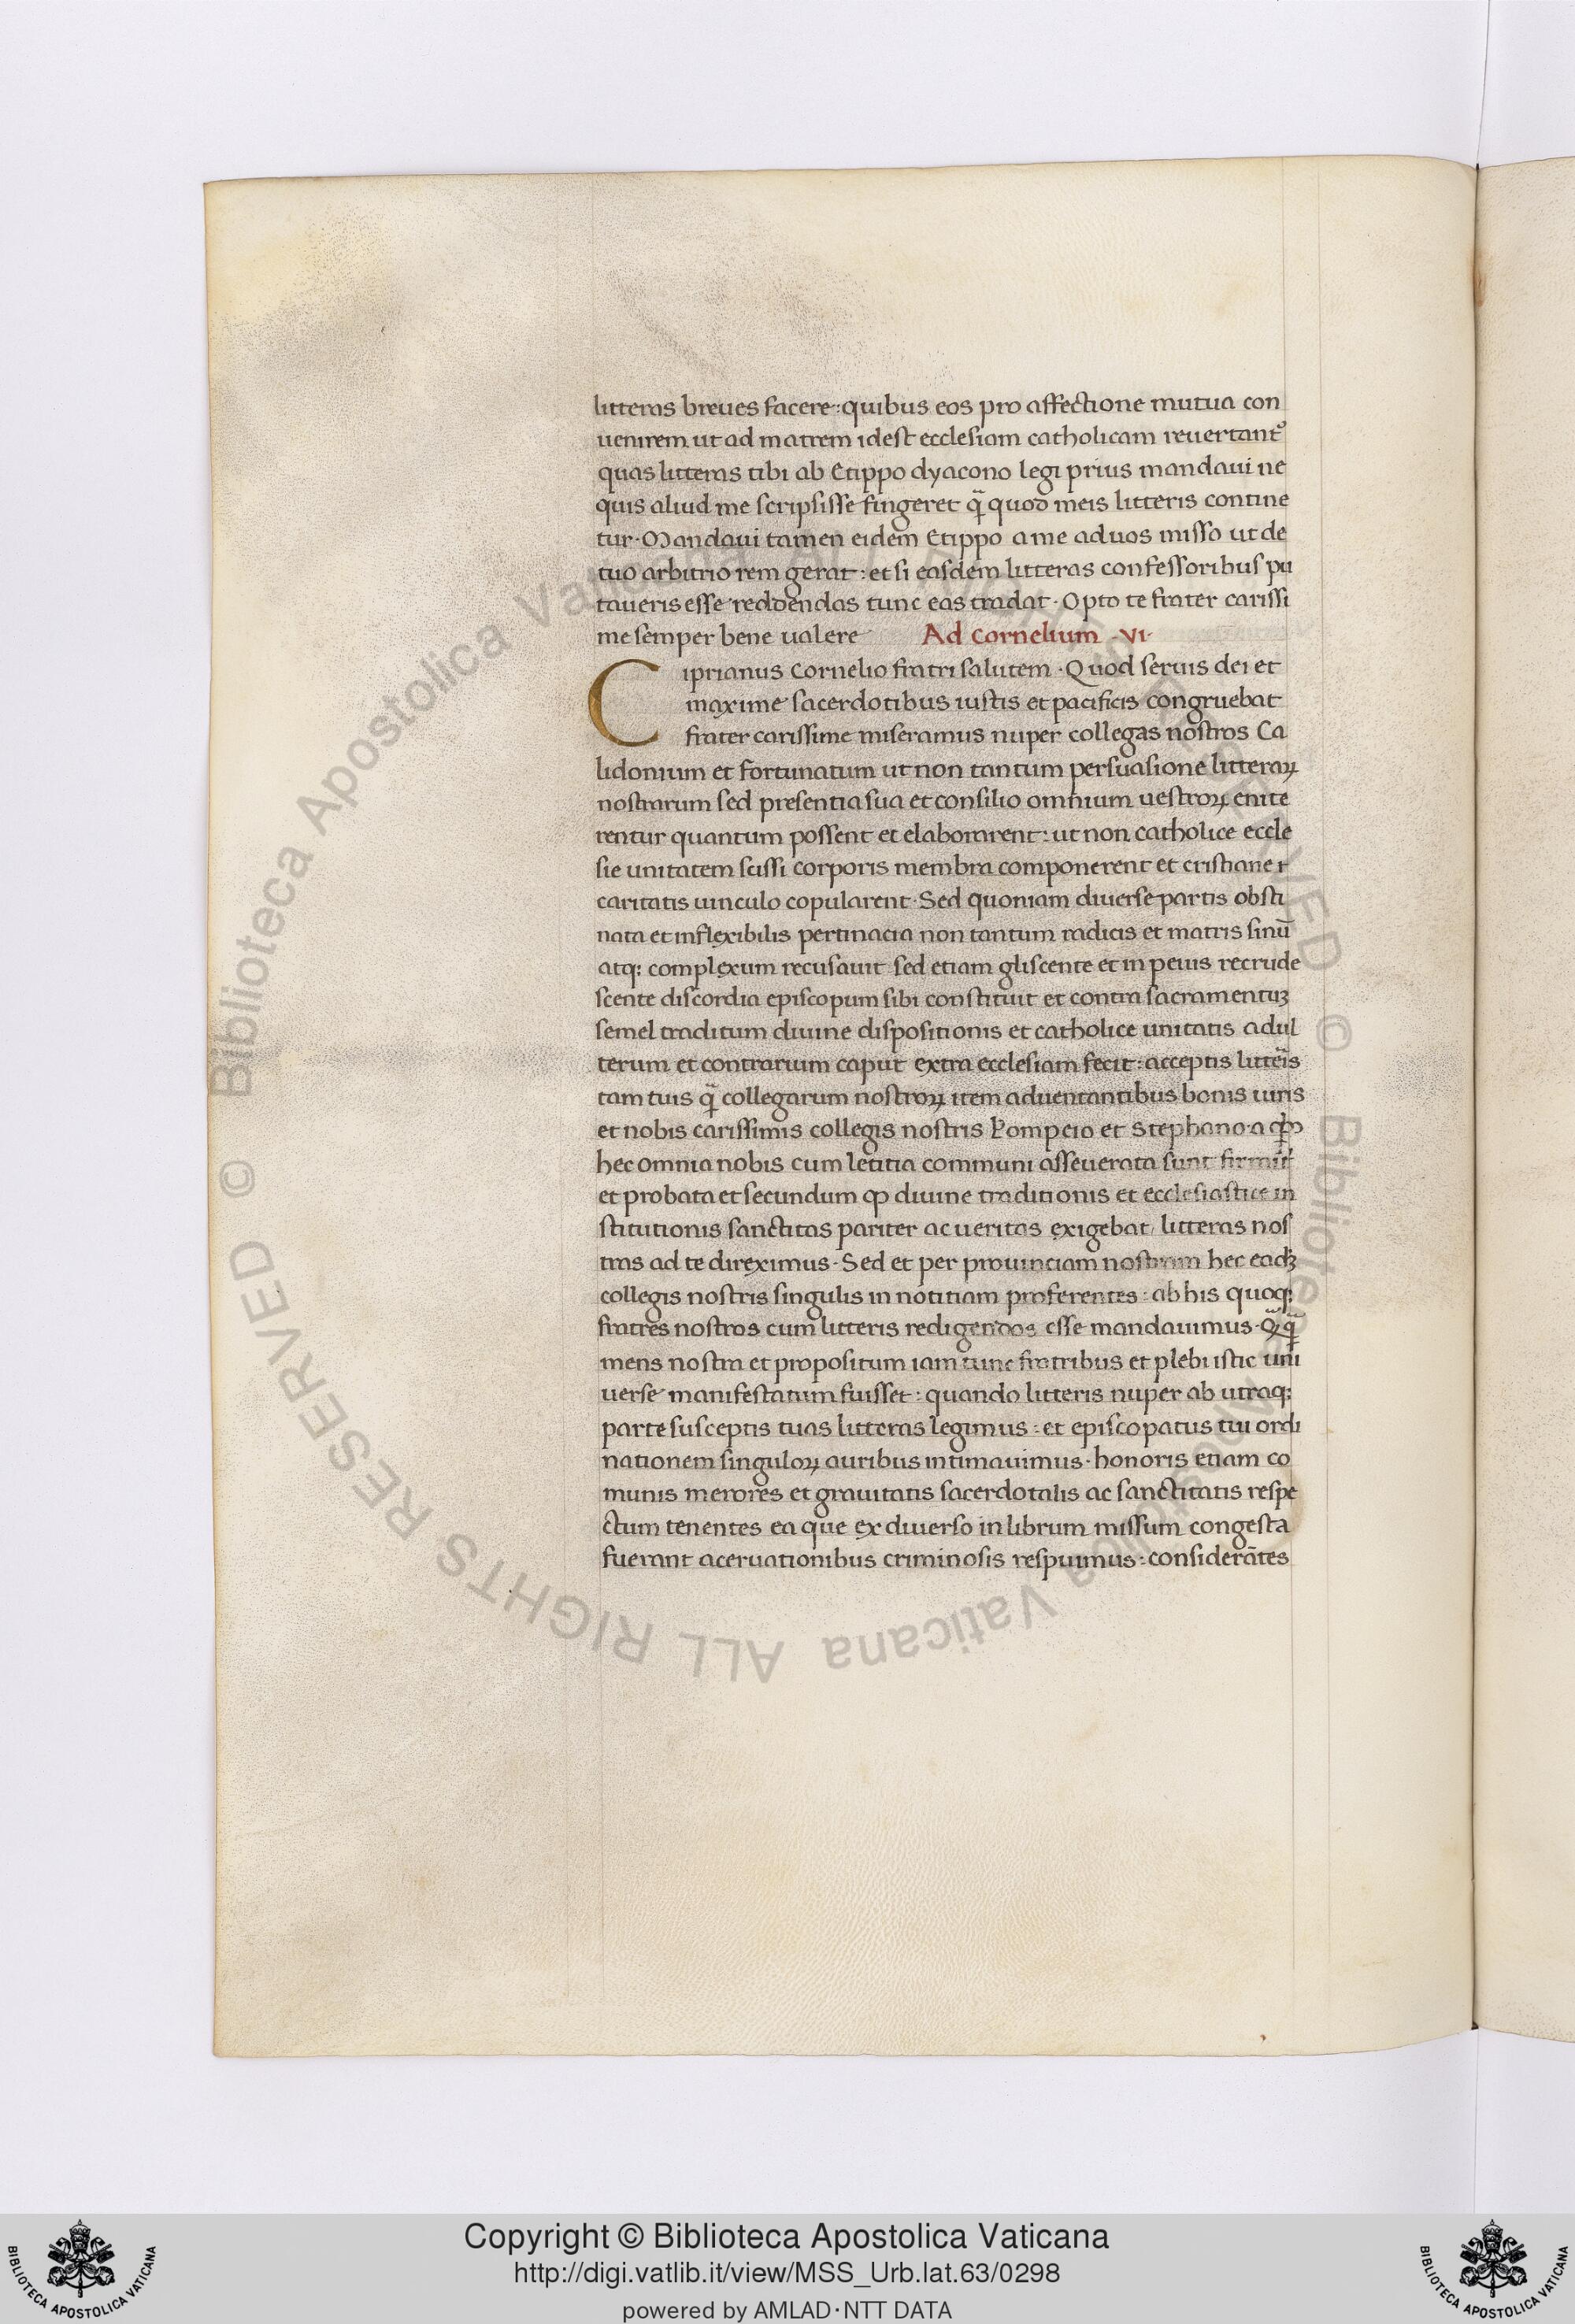 litteras breues facere: quibus eos pro affectione mutua con
uenirem ut ad matrem idest ecclesiam catholicam reuertantᷣ
quas litteras tibi ab Etippo dyacono legi prius mandaui ne
quis aliud me scripsisse fingeret q̃ quod meis litteris contine
tur· Mandaui tamen eidem Etippo a me ad uos misso ut de
tuo arbitrio rem gerat: et si easdem litteras confessoribus pu
taueris esse reddendas tunc eas tradat· Opto te frater carissi
me semper bene ualere Ad Cornelium ·VI·
Ciprianus Cornelio fratri salutem· Quod seruis dei et
maxime sacerdotibus iustis et pacificis congruebat
frater carissime miseramus nuper collegas nostros Ca
lidonium et fortunatum ut non tantum persuasione litteraꝝ
nostrarum sed presentia sua et consilio omnium uestroꝝ enite
rentur quantum possent et elaborarent: ut non catholice eccle
sie unitatem scissi corporis membra componerent et cristiane
caritatis uinculo copularent· Sed quoniam diuerse partis obsti
nata et inflexibilis pertinacia non tantum radicis et matris sinū
atq; complexum recusauit sed etiam gliscente et in peius recrude
scente discordia episcopum sibi constituit et contra sacramentuꝫ
semel traditum diuine dispositionis et catholice unitatis adul
terum et contrarium caput extra ecclesiam fecit: acceptis litteris
tam tuis q̃ collegarum nostroꝝ item aduentantibus bonis uiris
et nobis carissimis collegis nostris Pompeio et Stephano· a
hec omnia nobis cum letitia communi asseuerata sunt
et probata et secundum ꝙ diuine traditionis et ecclesiastice in
stitutionis sanctitas pariter ac ueritas exigebat, litteras nos
tras ad te direximus· Sed et per prouinciam nostram hec eadꝫ
collegis nostris singulis in notitiam proferentes: ab his quoq;
fratres nostros cum litteris redigendos esse mandauimus·
mens nostra et propositum iam tunc fratribus et plebi istic uni
uerse manifestatum fuisset: quando litteris nuper ab utraq;
parte susceptis tuas litteras legimus: et episcopatus tui ordi
nationem singuloꝝ auribus intimauimus· honoris etiam co
munis merores et grauitatis sacerdotalis ac sanctitatis respe
ctum tenentes ea que ex diuerso in librum missum congesta
fuerant aceruationibus criminosis respuimus: considerātes
© Biblioteca Apostolica Vaticana ALL RIGHTS RESERVED © Biblioteca Apostolica Vaticana ALL RIGHTS RESERVED
BIBLIOTECA APOSTOLICA VATICANA
Copyright © Biblioteca Apostolica Vaticana
http://digi.vatlib.it/view/MSS_Urb.lat.63/0298
powered by AMLAD·NTT DATA
BIBLIOTECA APOSTOLICA VATICANA